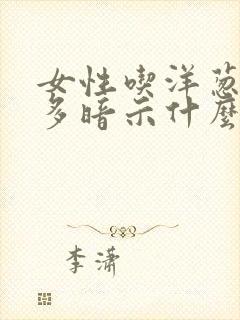 女性喫洋蔥
多暗示什麼
李潇